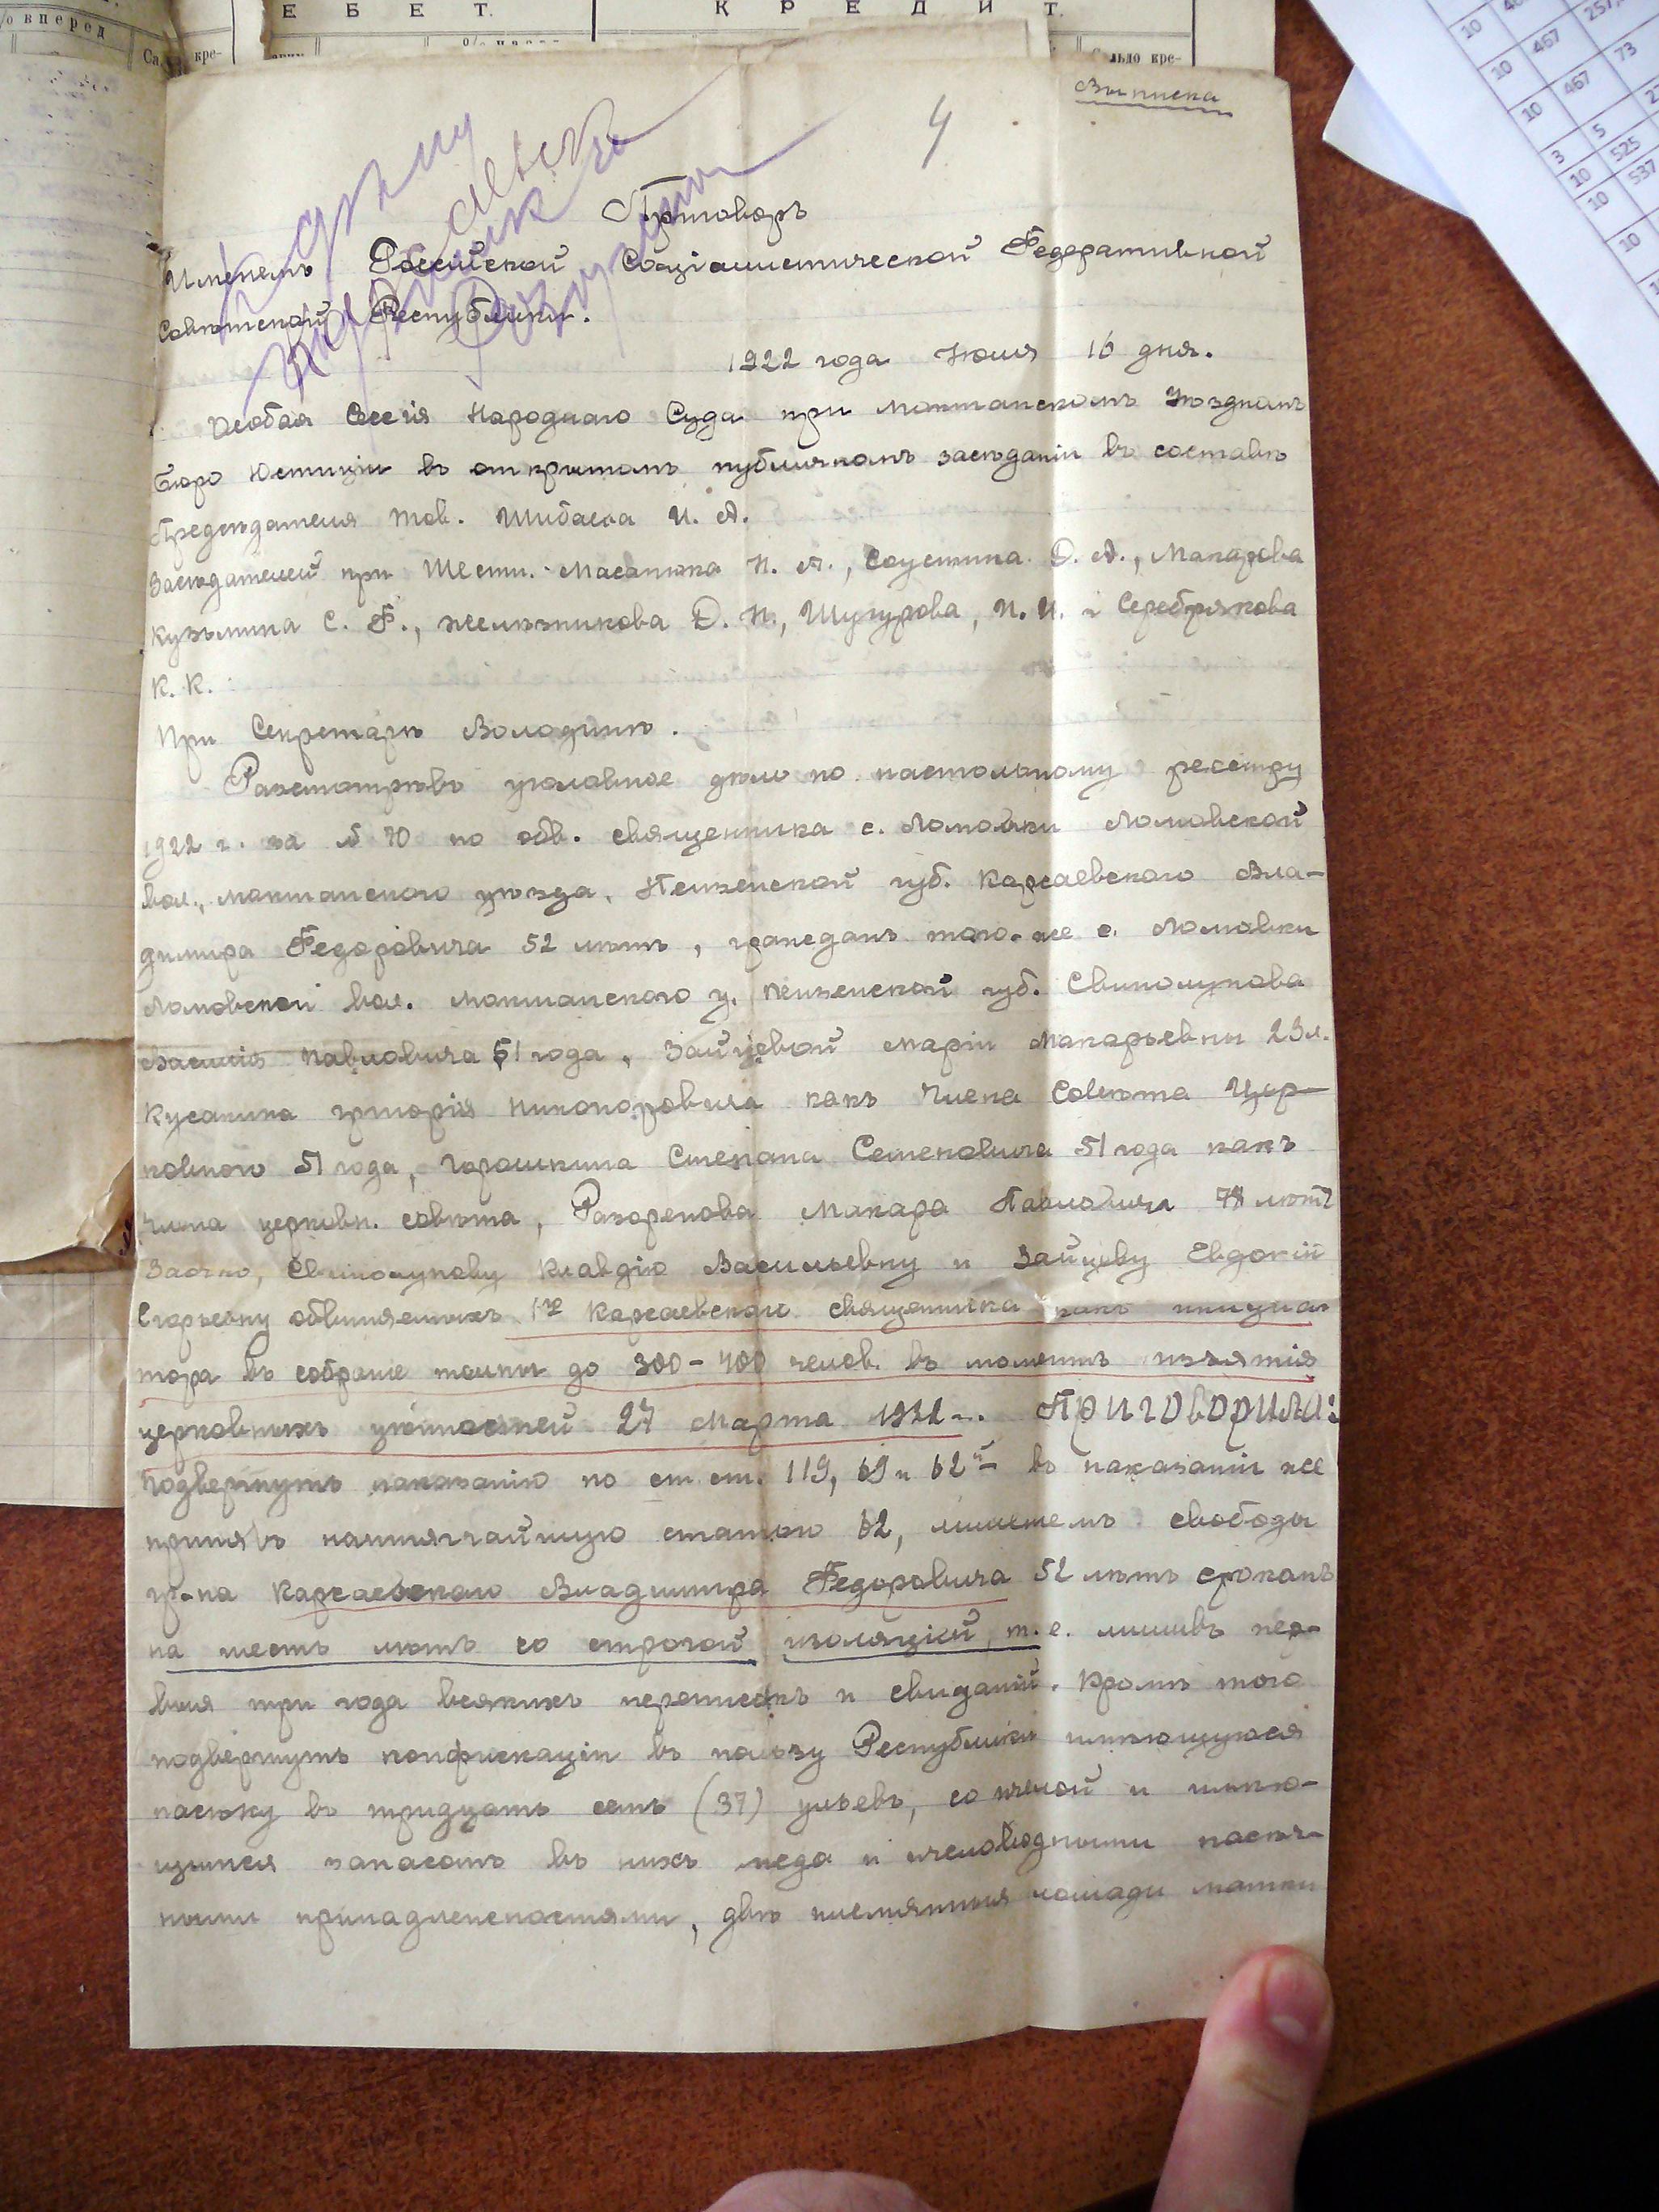 о вперед
Е Б Е Т.
К Р Е Д И Т.
кре-
Сальдо кре-
Выписка
4
Приговоръ
Именемъ Россійской Соціалистической Федеративной
Совѣтской Республики.
1922 года Июля 16 дня.
Особая Сессія Народнаго Суда при Мокшанскомъ Уѣздномъ
Бюро Юстиціи въ открытомъ публичномъ засѣданіи въ составѣ
Предсѣдателя тов. Шибаева И. А.
Засѣдателей при Шести. И. А., Соустина Д. А., Макарова
Кузьмина С. Ф., Желѣзникова Д. Н., Шугурова, И. И. и Серебрякова
К. К.
При Секретарѣ Володинѣ.
Разсмотрѣвъ уголовное дѣло по настольному реестру
1922 г. за № 70 по обв. священника с. Ломовки Ломовской
вол., Мокшанского уѣзда, Пензенской губ. Карсаевского Вла-
димира Федоровича 52 лѣтъ, гражданъ того-же с. Ломовки
Ломовской вол. Мокшанского у. Пензенской губ. Свинолупова
Василія Павловича 51 года, Зайцевой Маріи Макарьевны 23 л.
Кусакина Григорія Никоноровича какъ Члена Совѣта Цер-
ковного 51 года, Горошкина Степана Семеновича 51 года какъ
Члена церковн. совѣта, Разоренова Макара Павловича 78 лѣтъ
Заочно, Свинолупову Клавдію Васильевну и Зайцеву Евдокію
Егорьевну обвиняемыхъ 1го Карсаевского священника какъ иниціа-
тора въ собраніе толпы до 300-400 челов. въ моментъ изъятія
церковныхъ цѣнностей 27 Марта 1922 г. Приговорила:
Подвергнуть наказанію по ст. ст. 119, 69 и 62й въ наказаніи же
принявъ наитягчайшую статью 62, лишенемъ свободы
гр-на Карсаевского Владимира Федоровича 52 лѣтъ срокомъ
на шесть лѣтъ со строгой изоляціей, т.е. лишивъ пер-
выя три года всякихъ переписокъ и свиданій. Кромѣ того
подвергнуть конфискаціи въ пользу Республики имѣющуюся
пасѣку въ тридцать семь (37) ульевъ, со пчелой и имѣю-
щимся запасомъ въ нихъ меда и пчеловодными пасѣч-
ными принадлежностями, двѣ племянныя лошади матки